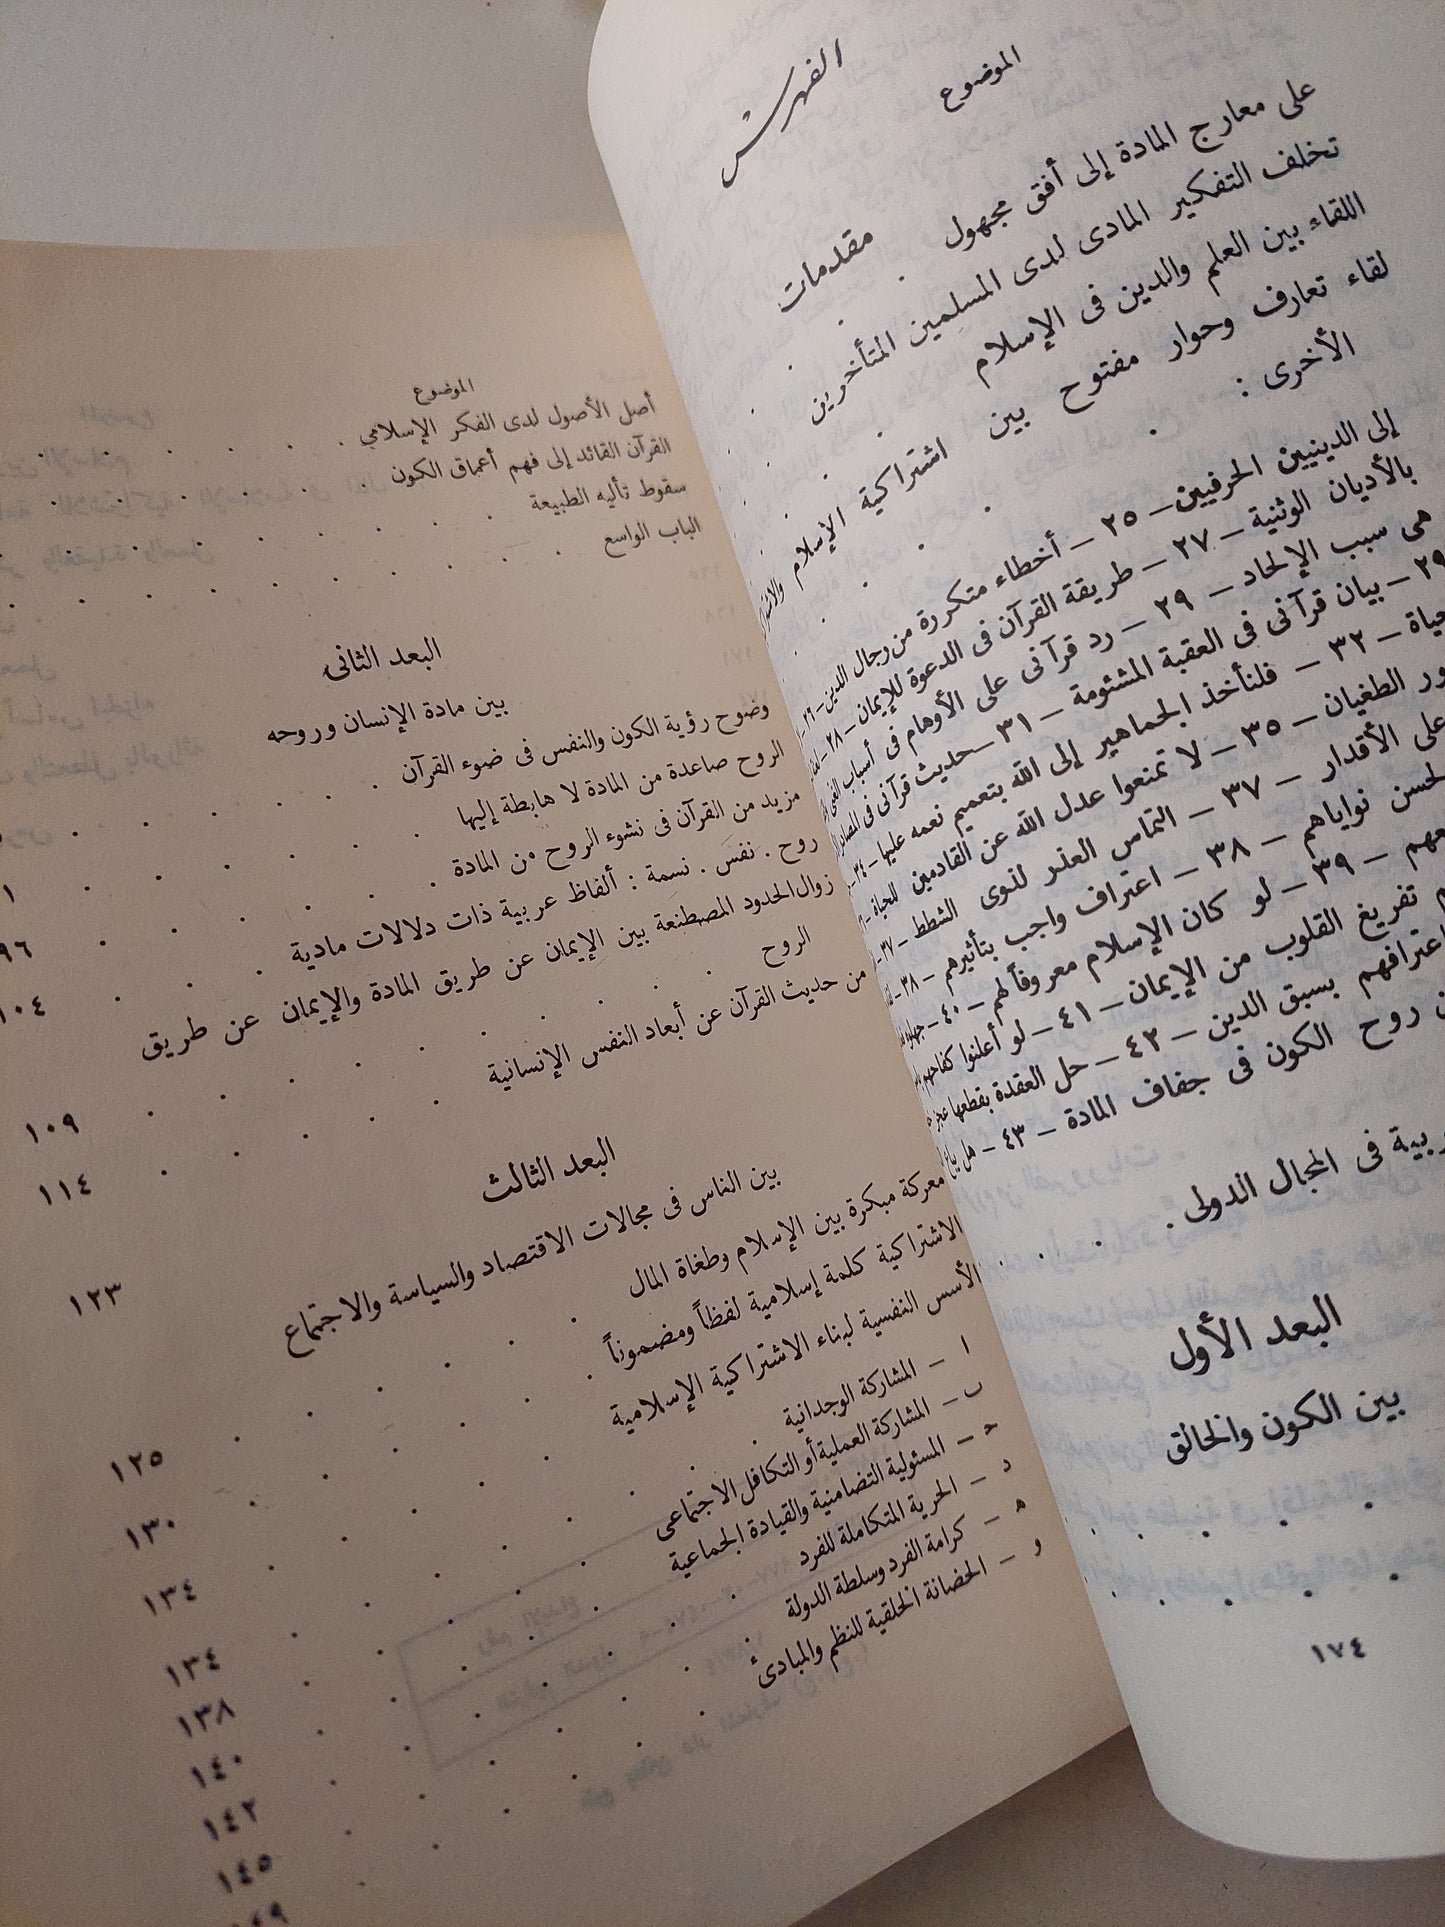 الفهرس
الموضوع
مقدمات
على معارج المادة إلى أفق مجهول
تخلف التفكير المادى لدى المسلمين المتأخرين
اللقاء بين العلم والدين فى الإسلام
لقاء تعارف وحوار مفتوح بين اشتراكية الإسلام
الأخرى :
إلى الدينيين الحرفيين – ٢٥ – أخطاء متكررة من رجال الدين – ٢٦
بالأديان الوثنية – ٢٧ – طريقة القرآن فى الدعوة للإيمان – ٢٨
هى سبب الإلحاد – ٢٩ – رد قرآنى على الأوهام فى أسباب الغنى
٢٩ – بيان قرآنى فى العقبة المشئومة – ٣١ – حديث قرآنى فى
– ٣٢ – فلنأخذ الجماهير إلى الله بتعميم نعمه عليها – ٣٤
الطغيان – ٣٥ – لا تمنعوا عدل الله عن القادمين للحياة
على الأقدار – ٣٧ – التماس العذر لذوى الشطط – ٣٧
نواياهم – ٣٨ – اعتراف واجب بتأثيرهم – ٣٨
– ٣٩ – لو كان الإسلام معروفاً لهم – ٤٠
تفريغ القلوب من الإيمان – ٤١ – لو أعلنوا كفاحهم
اعترافهم بسبق الدين – ٤٢ – حل العقدة بقطعها عجز
روح الكون فى جفاف المادة – ٤٣ – هل
فى المجال الدولى
البعد الأول
بين الكون والخالق
١٧٤
الموضوع
أصل الأصول لدى الفكر الإسلامي
القرآن القائد إلى فهم أعماق الكون
سقوط تأليه الطبيعة
الباب الواسع
البعد الثانى
بين مادة الإنسان وروحه
وضوح رؤية الكون والنفس فى ضوء القرآن
الروح صاعدة من المادة لا هابطة إليها
مزيد من القرآن فى نشوء الروح من المادة ٩٦
روح . نفس . نسمة : ألفاظ عربية ذات دلالات مادية ١٠٤
زوال الحدود المصطنعة بين الإيمان عن طريق المادة والإيمان عن طريق
الروح ١٠٩
من حديث القرآن عن أبعاد النفس الإنسانية ١١٤
البعد الثالث
بين الناس فى مجالات الاقتصاد والسياسة والاجتماع ١٢٣
معركة مبكرة بين الإسلام وطغاة المال ١٢٥
الاشتراكية كلمة إسلامية لفظاً ومضموناً ١٣٠
الأسس النفسية لبناء الاشتراكية الإسلامية ١٣٤
ا – المشاركة الوجدانية ١٣٤
ب – المشاركة العملية أو التكافل الاجتماعى ١٣٨
ح – المسئولية التضامنية والقيادة الجماعية ١٤٠
د – الحرية المتكاملة للفرد ١٤٢
ه – كرامة الفرد وسلطة الدولة ١٤٥
و – الحضانة الخلقية للنظم والمبادئ